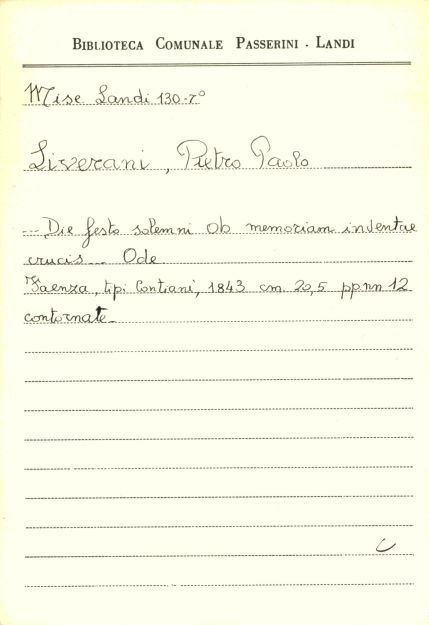 BIBLIOTECA COMUNALE PASSERINI - LANDI
Misc Landi 130-7°
Liverani, Pietro Paolo
... Die festo solemni ob memoriam inventae
crucis ... Ode
Faenza, tipi Contiani, 1843 cm. 20,5 pp nn 12
contornate_
C